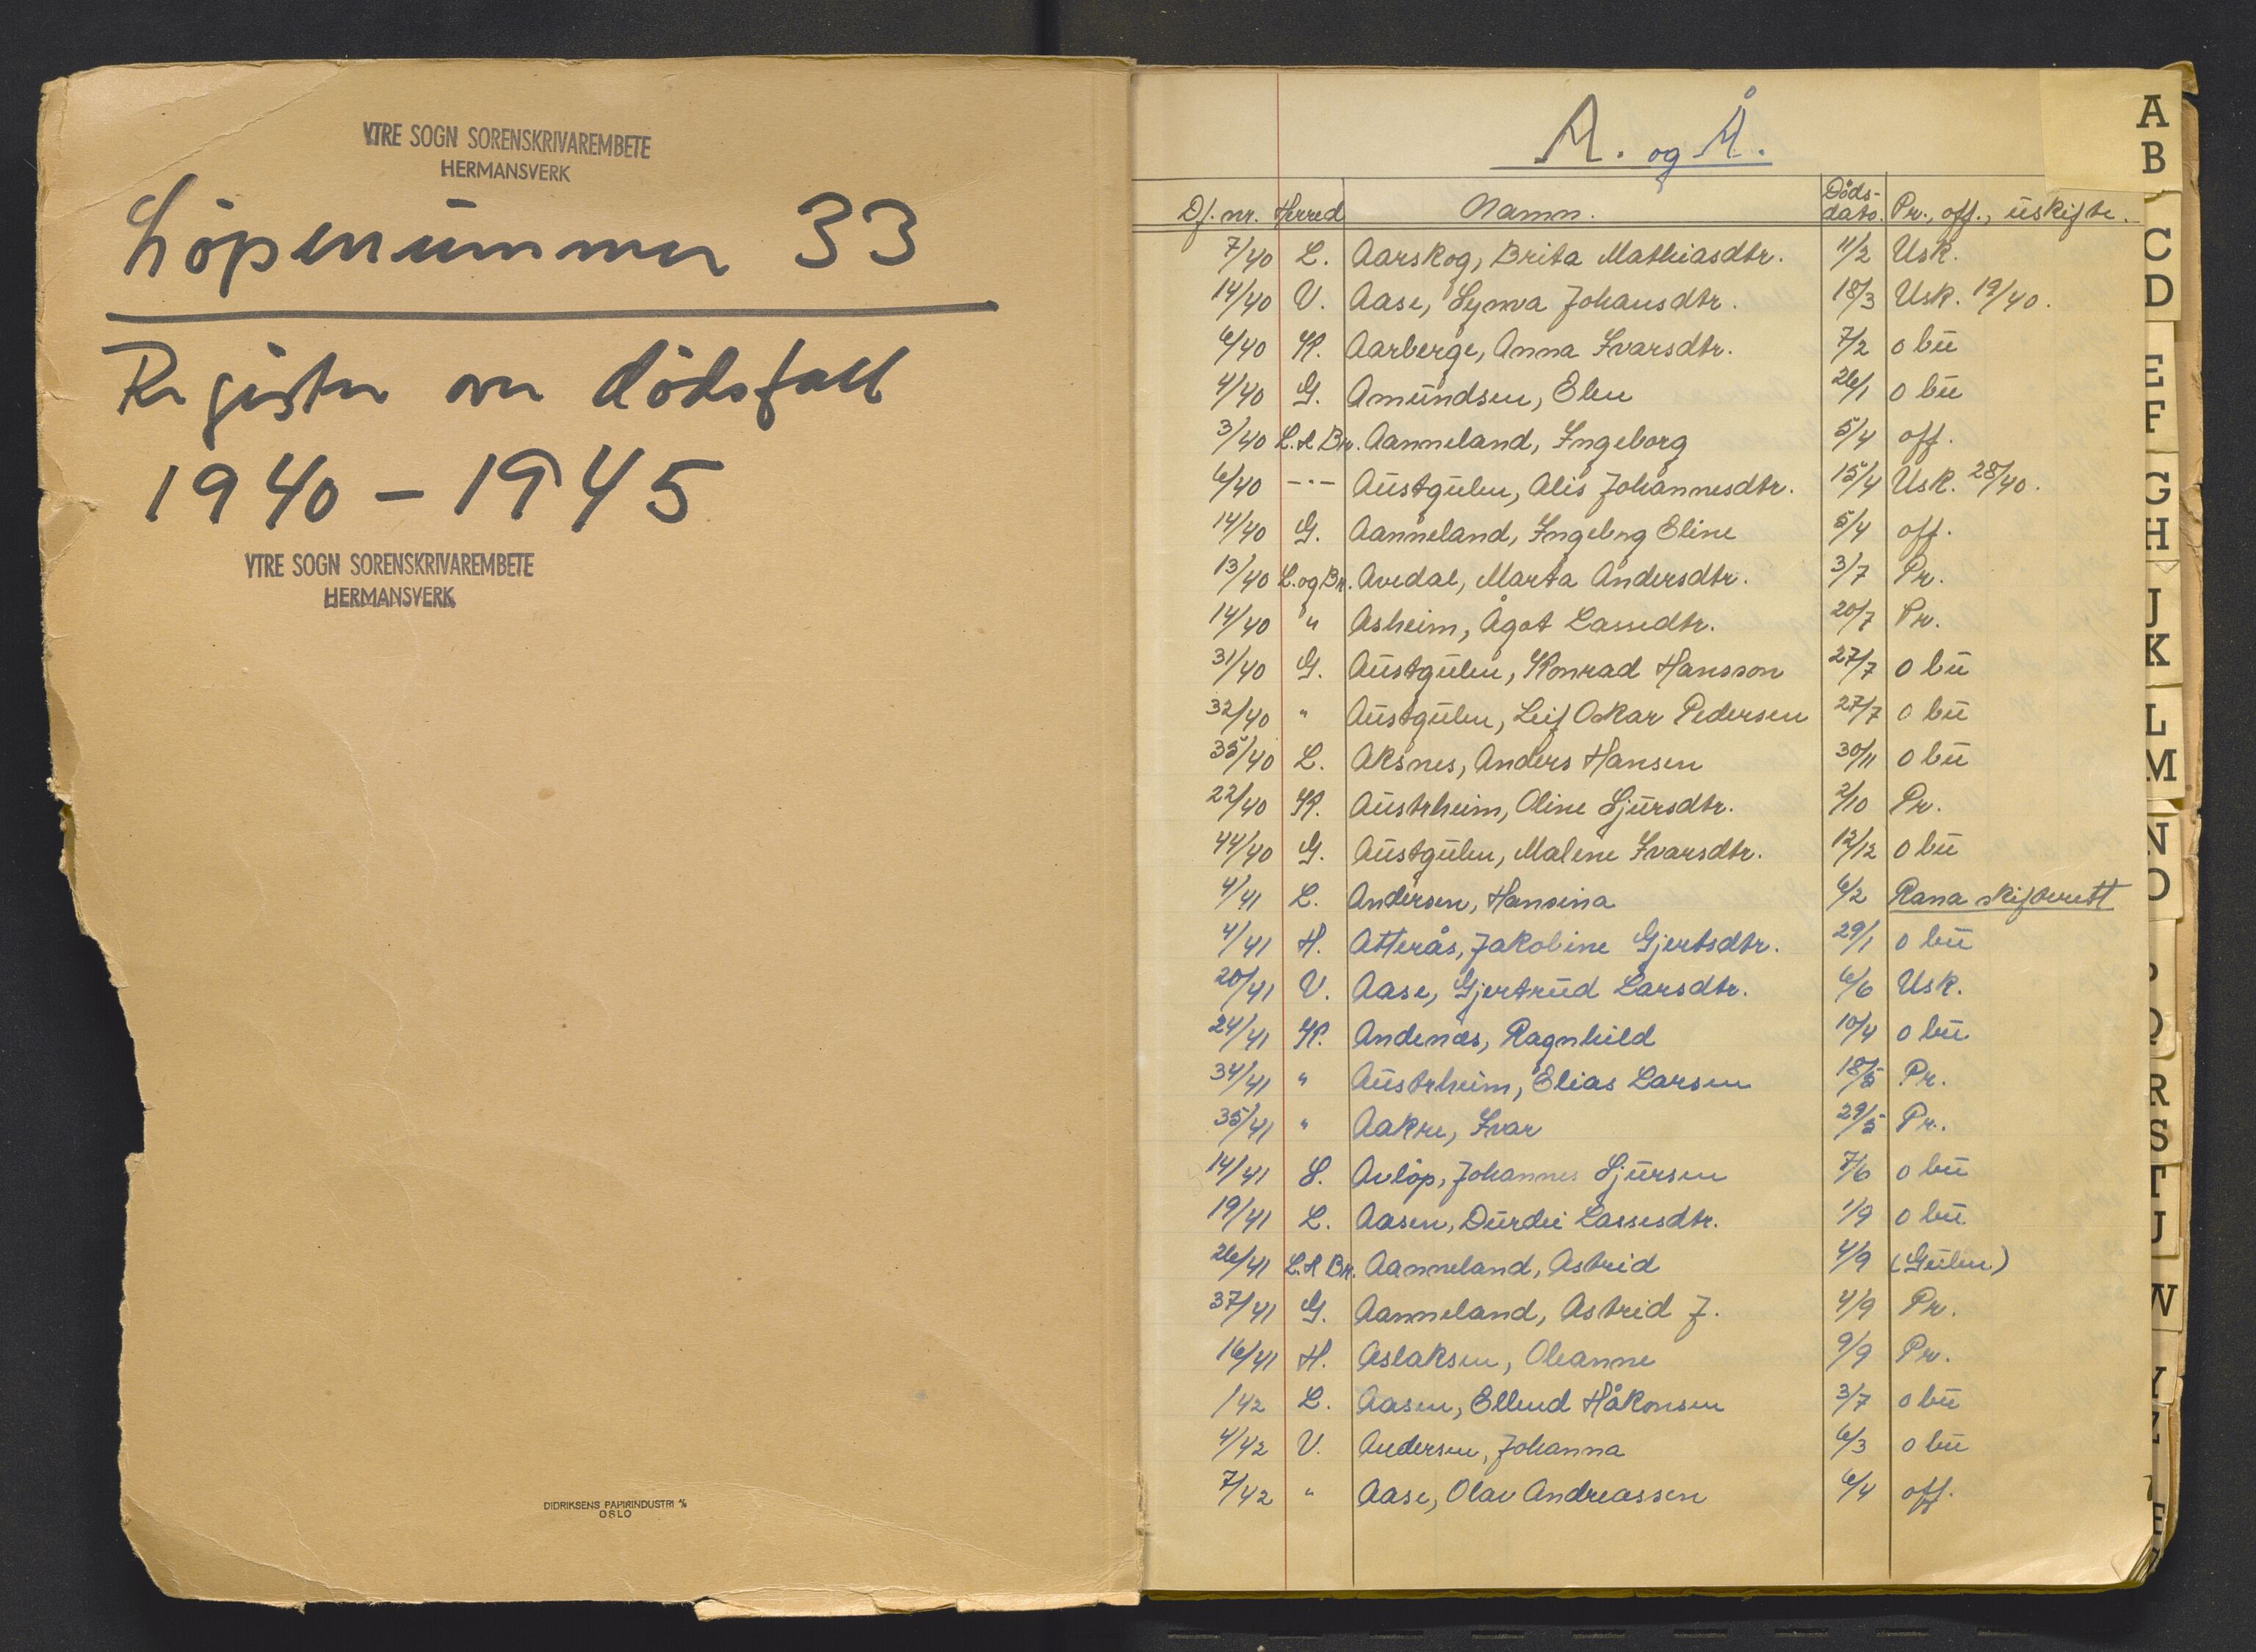 YTRE SOGN SORENSKRIVAREMBETE
HERMANSVERK
Löpenummer 33
Register over dödsfall
1940 - 1945
YTRE SOGN SORENSKRIVAREMBETE
HERMANSVERK
DIDRIKSENS PAPIRINDUSTRI A/S
OSLO
A. og Å.
Df. nr. Herred Namn. Døds-dato. Pr., off., uskifte.
7/40 L. Aarskog, Brita Mathiasdtr. 11/2 Usk.
14/40 V. Aase, Synva Johansdtr. 18/3 Usk. 19/40.
6/40 K. Aarberge, Anna Ivarsdtr. 7/2 o bu
4/40 G. Amundsen, Elen 26/1 o bu
3/40 L. & Br. Aanneland, Ingeborg 5/4 off.
6/40 -·- Austgulen, Alis Johannesdtr. 15/4 Usk. 28/40.
14/40 G. Aanneland, Ingebrg Eline 5/4 off.
13/40 L. og Br. Avedal, Marta Andersdtr. 3/7 Pr.
14/40 " Asheim, Ågot Lassedtr. 20/7 Pr.
31/40 G. Austgulen, Konrad Hansson 27/7 o bu
32/40 " Austgulen, Leif Oskar Pedersen 27/7 o bu
35/40 L. Aksnes, Anders Hansen 30/11 o bu
22/40 K. Austrheim, Oline Sjursdtr. 2/10 Pr.
44/40 G. Austgulen, Malene Ivarsdtr. 12/12 o bu
4/41 L. Andersen, Hansina 6/2 Rana skifterett
4/41 H. Atterås, Jakobine Gjertsdtr. 29/1 o bu
20/41 V. Aase, Gjertrud Larsdtr. 6/6 Usk.
24/41 K. Andenæs, Ragnhild 10/4 o bu
34/41 " Austrheim, Elias Larsen 18/5 Pr.
35/41 " Aakre, Ivar 29/5 Pr.
14/41 S. Avlöp, Johannes Sjursen 7/6 o bu
19/41 L. Aasen, Durdei Lassesdtr. 1/9 o bu
26/41 L. & Br. Aanneland, Astrid 4/9 (Gulen)
37/41 G. Aanneland, Astrid J. 4/9 Pr.
16/41 H. Aslaksen, Oleanne 9/9 Pr.
/42 L. Aasen, Ellend Håkonsen 3/7 o bu
4/42 V. Andersen, Johanna 6/3 o bu
7/42 " Aase, Olav Andreassen 6/4 off.
A
B
C
D
E
F
G
H
J
K
L
M
N
O
Q
R
S
T
U
W